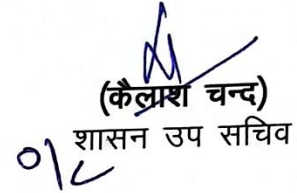 (कैलाश चन्द)
शासन उप सचिव